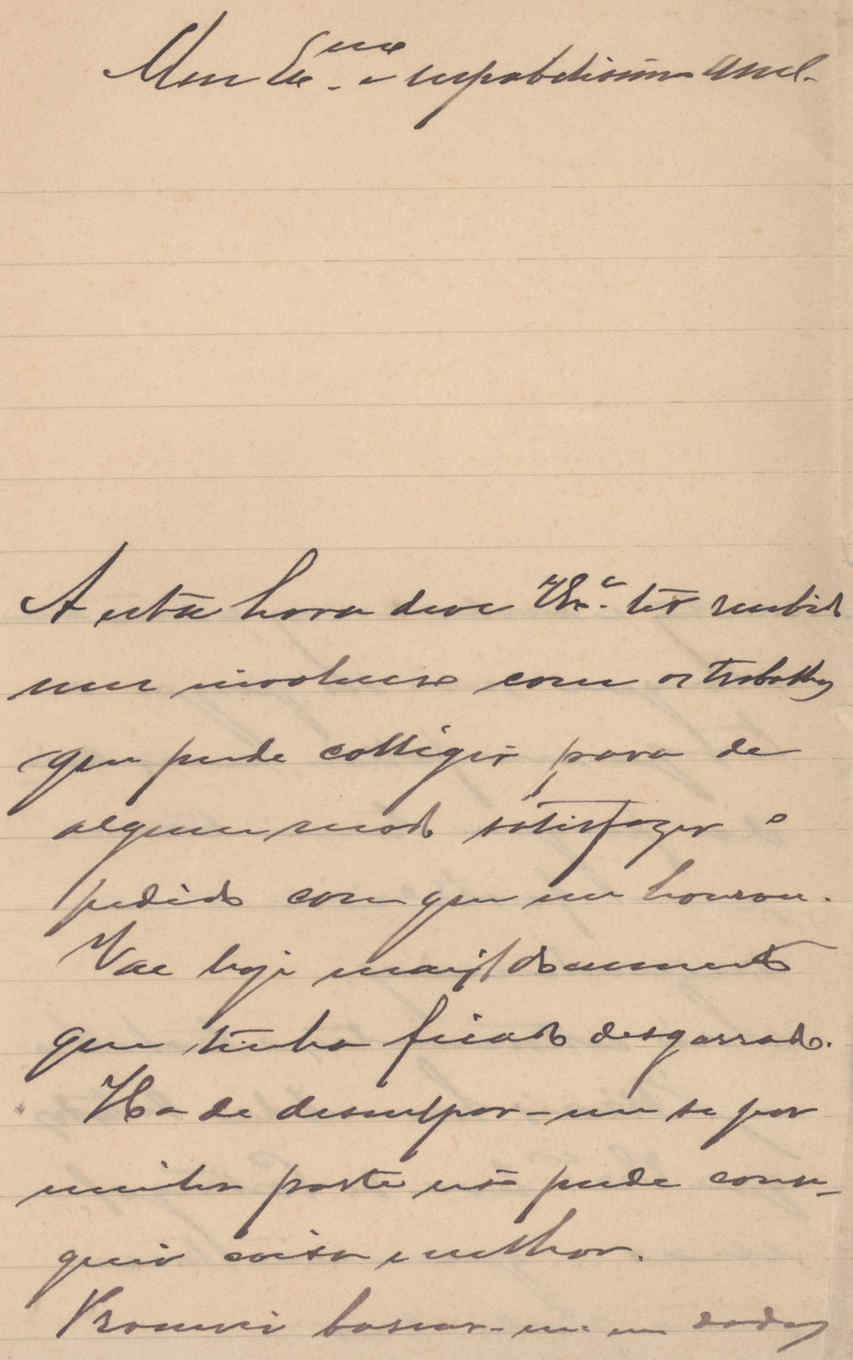 Meu Ex.mo e respeitabilissimo Am.º
A esta hora deve V. Ex.ª ter recebido
um involucro com os trabalhos
que pude colligir para de
algum modo satisfazer o
pedido com que me honrou.
Vae hoje mais 1 documento
que tinha ficado desgarrado.
Ha-de desculpar-me se por
minha parte não pude conse-
guir coisa melhor.
Procurei basear-me em dados